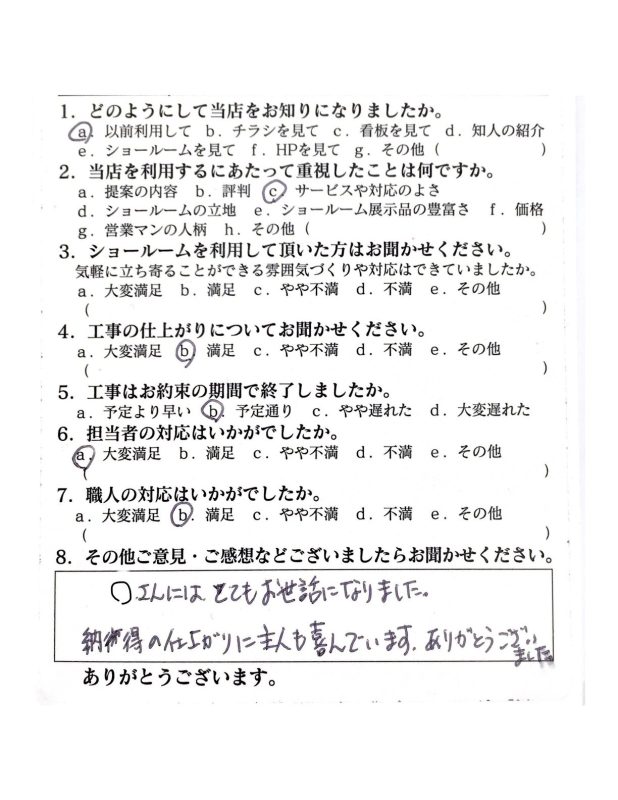 1．どのようにして当店をお知りになりましたか。
a．以前利用して b．チラシを見て c．看板を見て d．知人の紹介
e．ショールームを見て f．HPを見て g．その他（ ）
2．当店を利用するにあたって重視したことは何ですか。
a．提案の内容 b．評判 c．サービスや対応のよさ
d．ショールームの立地 e．ショールーム展示品の豊富さ f．価格
g．営業マンの人柄 h．その他（ ）
3．ショールームを利用して頂いた方はお聞かせください。
気軽に立ち寄ることができる雰囲気づくりや対応はできていましたか。
a．大変満足 b．満足 c．やや不満 d．不満 e．その他
（ ）
4．工事の仕上がりについてお聞かせください。
a．大変満足 b．満足 c．やや不満 d．不満 e．その他
（ ）
5．工事はお約束の期間で終了しましたか。
a．予定より早い b．予定通り c．やや遅れた d．大変遅れた
6．担当者の対応はいかがでしたか。
a．大変満足 b．満足 c．やや不満 d．不満 e．その他
（ ）
7．職人の対応はいかがでしたか。
a．大変満足 b．満足 c．やや不満 d．不満 e．その他
（ ）
8．その他ご意見・ご感想などございましたらお聞かせください。
○さんには とてもお世話になりました。
納得の仕上がりに主人も喜んでいます。ありがとうござい
ました。
ありがとうございます。